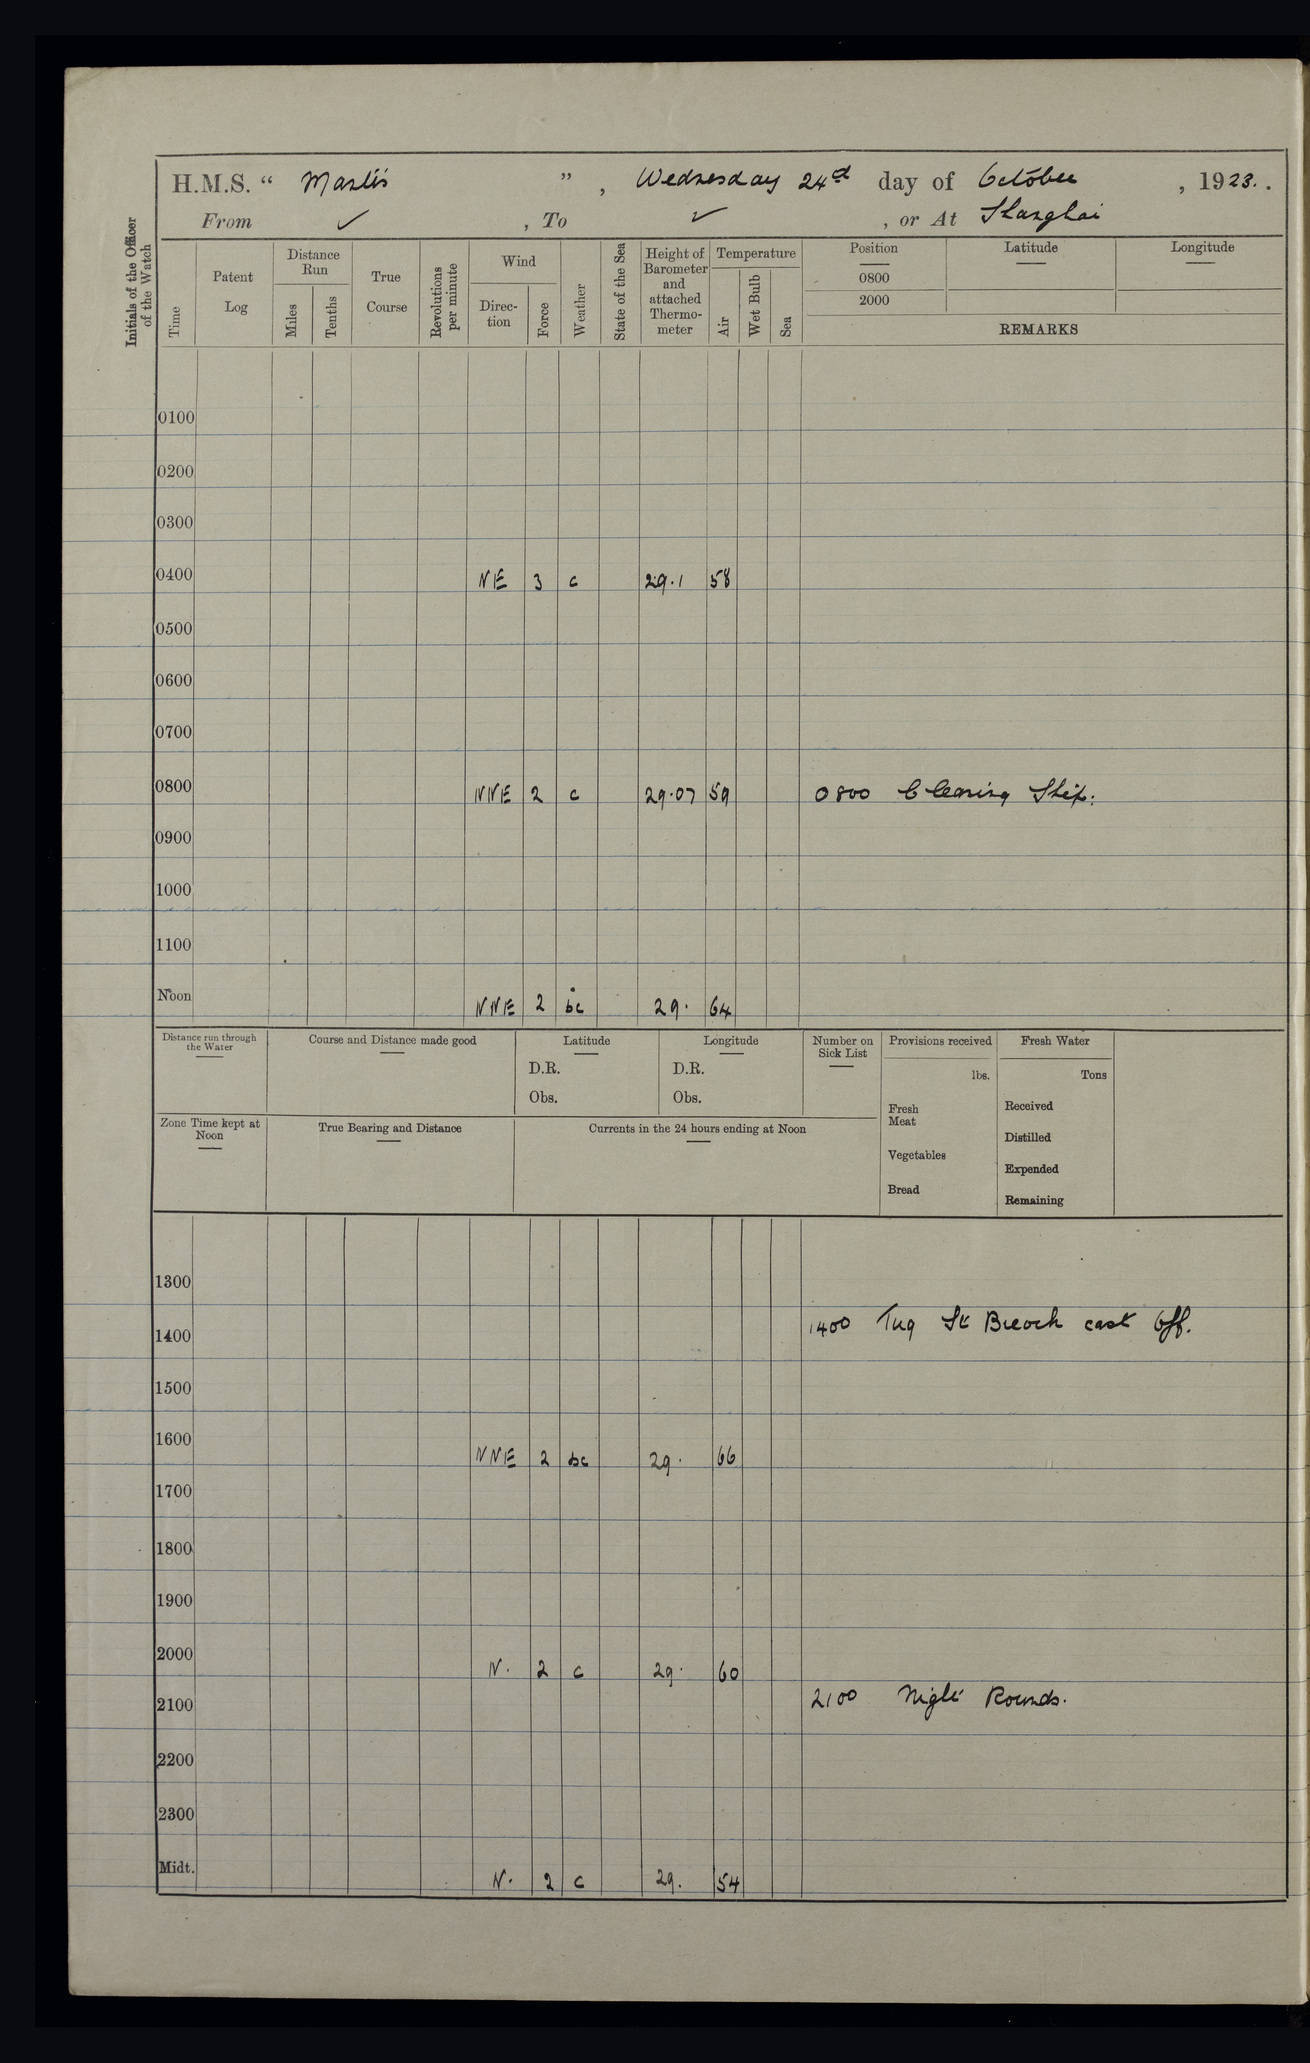 H.M.S. “ Mantis ” , Wednesday 24th day of October , 1923. .
From ✓ , To ✓ , or At Shanghai
Initials of the Officer of the Watch
Time
Patent Log
Distance Run
Miles
Tenths
True Course
Revolutions per minute
Wind
Direc-tion
Force
Weather
State of the Sea
Height of Barometer and attached Thermo-meter
Temperature
Air
Wet Bulb
Sea
Position Latitude Longitude
0800
2000
REMARKS
0100
0200
0300
0400 NE 3 c 29.1 58
0500
0600
0700
0800 NNE 2 c 29.07 59 0800 Cleaning Ship.
0900
1000
1100
Noon NNE 2 bc 29. 64
Distance run through the Water
Course and Distance made good
Latitude
D.R.
Obs.
Longitude
D.R.
Obs.
Number on Sick List
Provisions received
lbs.
Fresh Meat
Vegetables
Bread
Fresh Water
Tons
Received
Distilled
Expended
Remaining
Zone Time kept at Noon
True Bearing and Distance
Currents in the 24 hours ending at Noon
1300
1400 1400 Tug St Breock cast off.
1500
1600 NNE 2 bc 29. 66
1700
1800
1900
2000 N. 2 c 29. 60
2100 2100 Night Rounds.
2200
2300
Midt. N. 2 c 29. 54